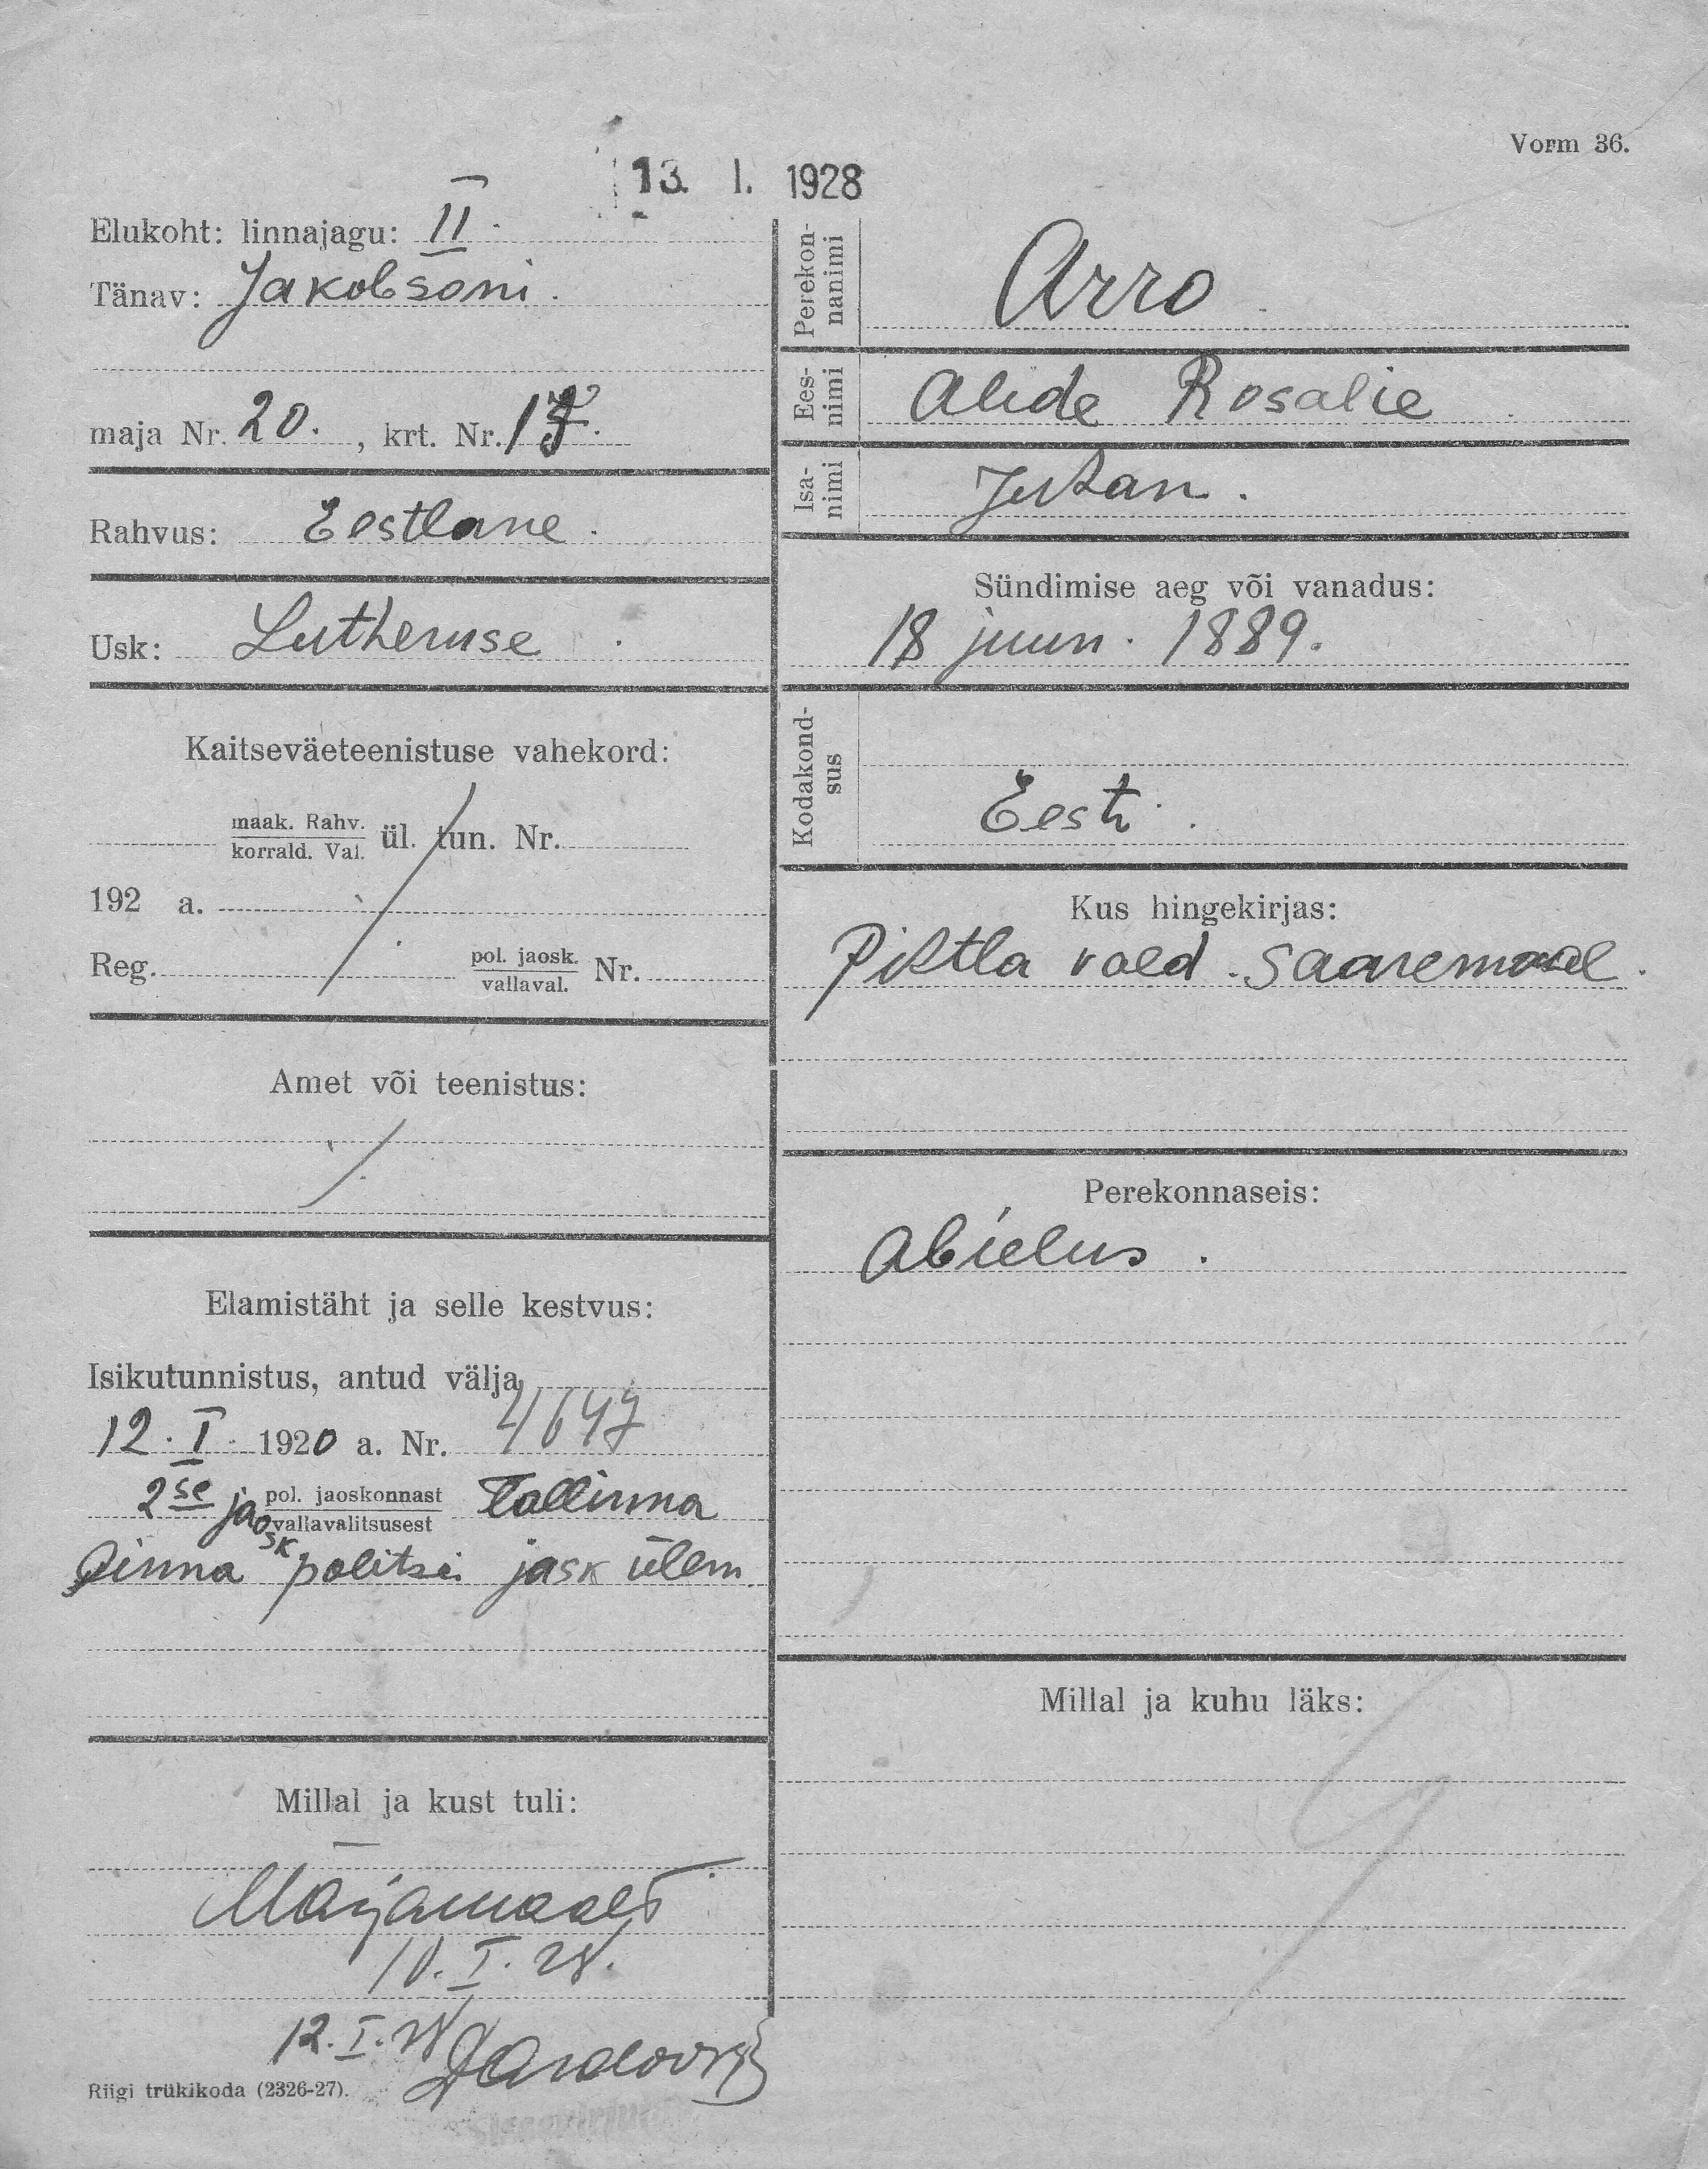 Vorm 36.
13. I. 1928
Elukoht: linnajagu: II
Tänav: Jakobsoni.
maja Nr. 20. , krt. Nr. 17.
Rahvus: Eestlane.
Usk: Lutheruse
Kaitseväeteenistuse vahekord:
maak. Rahv.
korrald. Val. ül. tun. Nr.
192 a.
Reg. pol. jaosk.
vallaval. Nr.
Amet või teenistus:
Elamistäht ja selle kestvus:
Isikutunnistus, antud välja
12. I. 1920 a. Nr. 4647
2se jaosk pol. jaoskonnast
vallavalitsusest Tallinna
Linna politsei jask ülem
Millal ja kust tuli:
Märjamaalt
10. I. 28.
12. I. 28
Riigi trükikoda (2326-27).
Perekon-
nanimi Arro
Ees-
nimi Alide Rosalie
Isa-
nimi Juhan.
Sündimise aeg või vanadus:
18 juun. 1889.
Kodakond-
sus Eesti.
Kus hingekirjas:
Pihtla vald. Saaremaal.
Perekonnaseis:
Abielus.
Millal ja kuhu läks: